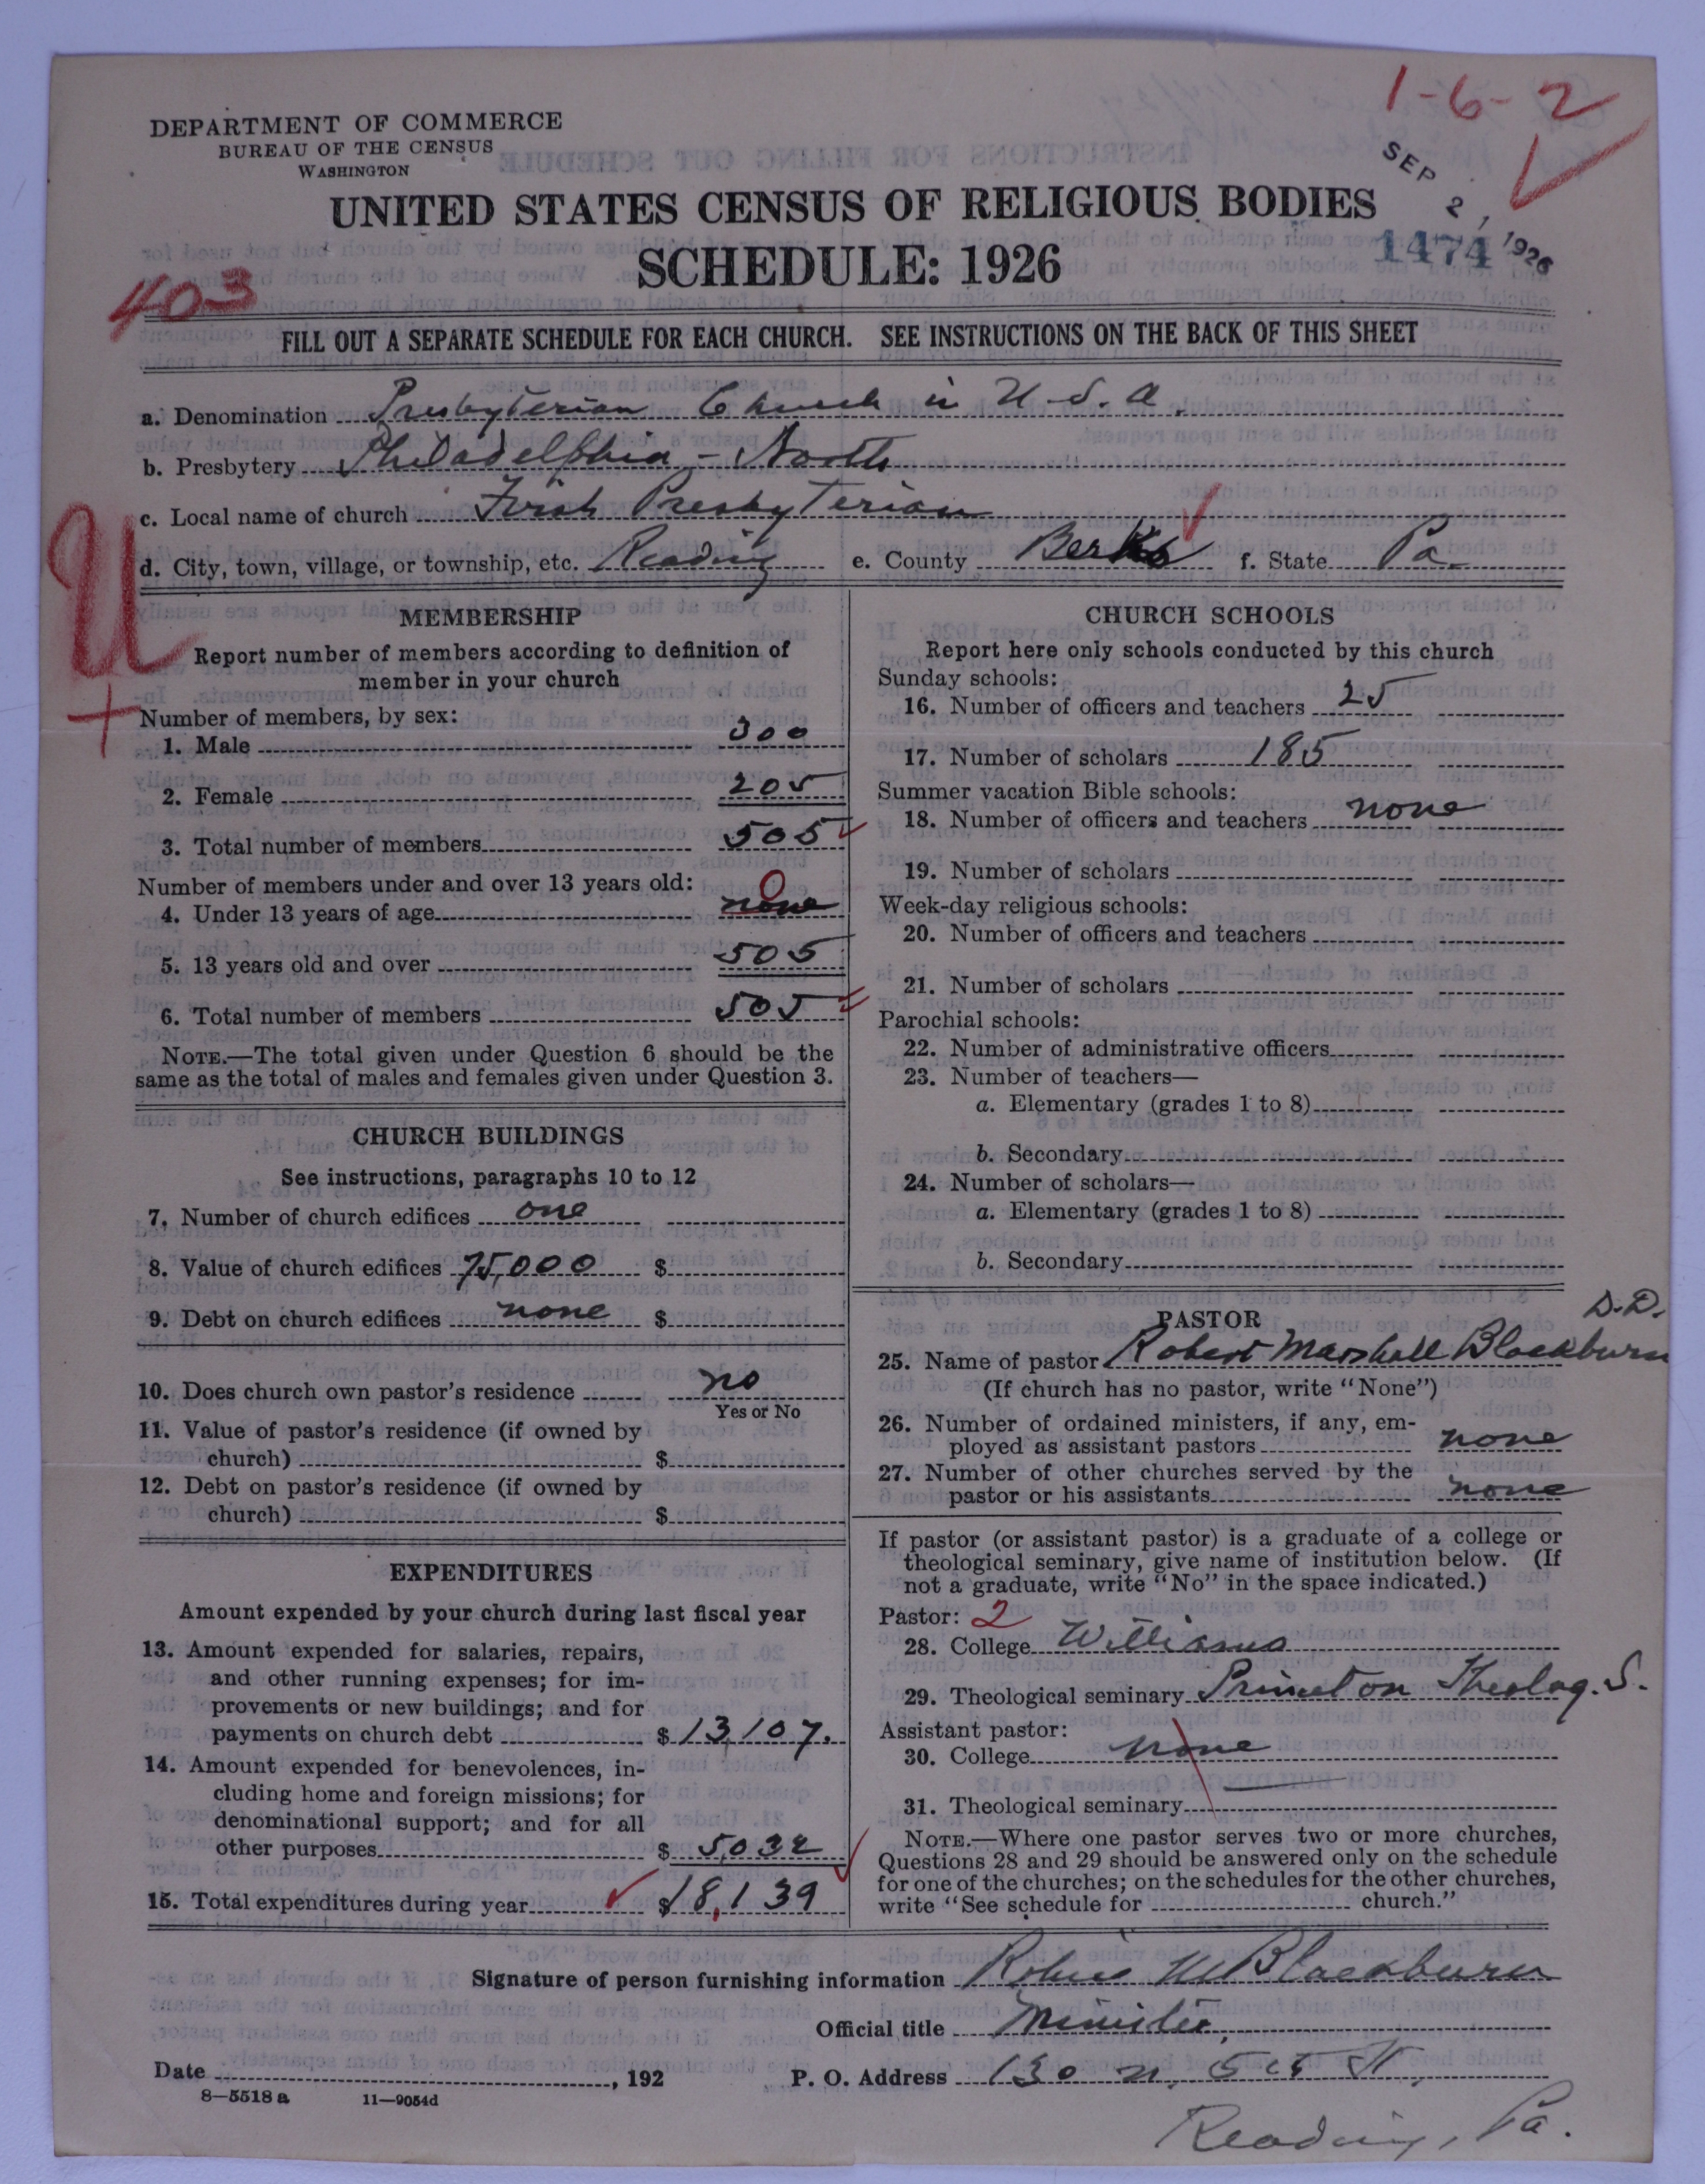 1-6-2
DEPARTMENT OF COMMERCE
BUREAU OF THE CENSUS
WASHINGTON
SEP 2, 1926
UNITED STATES CENSUS OF RELIGIOUS BODIES
1474
SCHEDULE: 1926
403
FILL OUT A SEPARATE SCHEDULE FOR EACH CHURCH. SEE INSTRUCTIONS ON THE BACK OF THIS SHEET
a. Denomination Presbyterian Church in U.S.A.
b. Presbytery Philadelphia - North
c. Local name of church First Presbyterian
d. City, town, village, or township, etc. Reading e. County Berks f. State Pa.
U
MEMBERSHIP
Report number of members according to definition of
member in your church
Number of members, by sex:
1. Male 300
2. Female 205
3. Total number of members 505
Number of members under and over 13 years old:
0
4. Under 13 years of age none
5. 13 years old and over 505
6. Total number of members 505
NOTE.—The total given under Question 6 should be the
same as the total of males and females given under Question 3.
CHURCH BUILDINGS
See instructions, paragraphs 10 to 12
7. Number of church edifices one
8. Value of church edifices 75,000 $
9. Debt on church edifices none $
10. Does church own pastor's residence no
Yes or No
11. Value of pastor's residence (if owned by
church) $
12. Debt on pastor's residence (if owned by
church) $
EXPENDITURES
Amount expended by your church during last fiscal year
13. Amount expended for salaries, repairs,
and other running expenses; for im-
provements or new buildings; and for
payments on church debt $ 13,107.
14. Amount expended for benevolences, in-
cluding home and foreign missions; for
denominational support; and for all
other purposes $ 5,032
15. Total expenditures during year $ 18,139
CHURCH SCHOOLS
Report here only schools conducted by this church
Sunday schools:
16. Number of officers and teachers 25
17. Number of scholars 185
Summer vacation Bible schools:
18. Number of officers and teachers none
19. Number of scholars
Week-day religious schools:
20. Number of officers and teachers
21. Number of scholars
Parochial schools:
22. Number of administrative officers
23. Number of teachers—
a. Elementary (grades 1 to 8)
b. Secondary
24. Number of scholars—
a. Elementary (grades 1 to 8)
b. Secondary
PASTOR
D.D.
25. Name of pastor Robert Marshall Blackburn
(If church has no pastor, write "None")
26. Number of ordained ministers, if any, em-
ployed as assistant pastors none
27. Number of other churches served by the
pastor or his assistants none
If pastor (or assistant pastor) is a graduate of a college or
theological seminary, give name of institution below. (If
not a graduate, write "No" in the space indicated.)
Pastor: 2
28. College Williams
29. Theological seminary Princeton Theolog. S.
Assistant pastor:
30. College none
31. Theological seminary
NOTE.—Where one pastor serves two or more churches,
Questions 28 and 29 should be answered only on the schedule
for one of the churches; on the schedules for the other churches,
write "See schedule for church."
Signature of person furnishing information Robert M Blackburn
Official title Minister,
Date , 192 P. O. Address 130 N. 5th St,
8—5518 a 11—9054d
Reading, Pa.